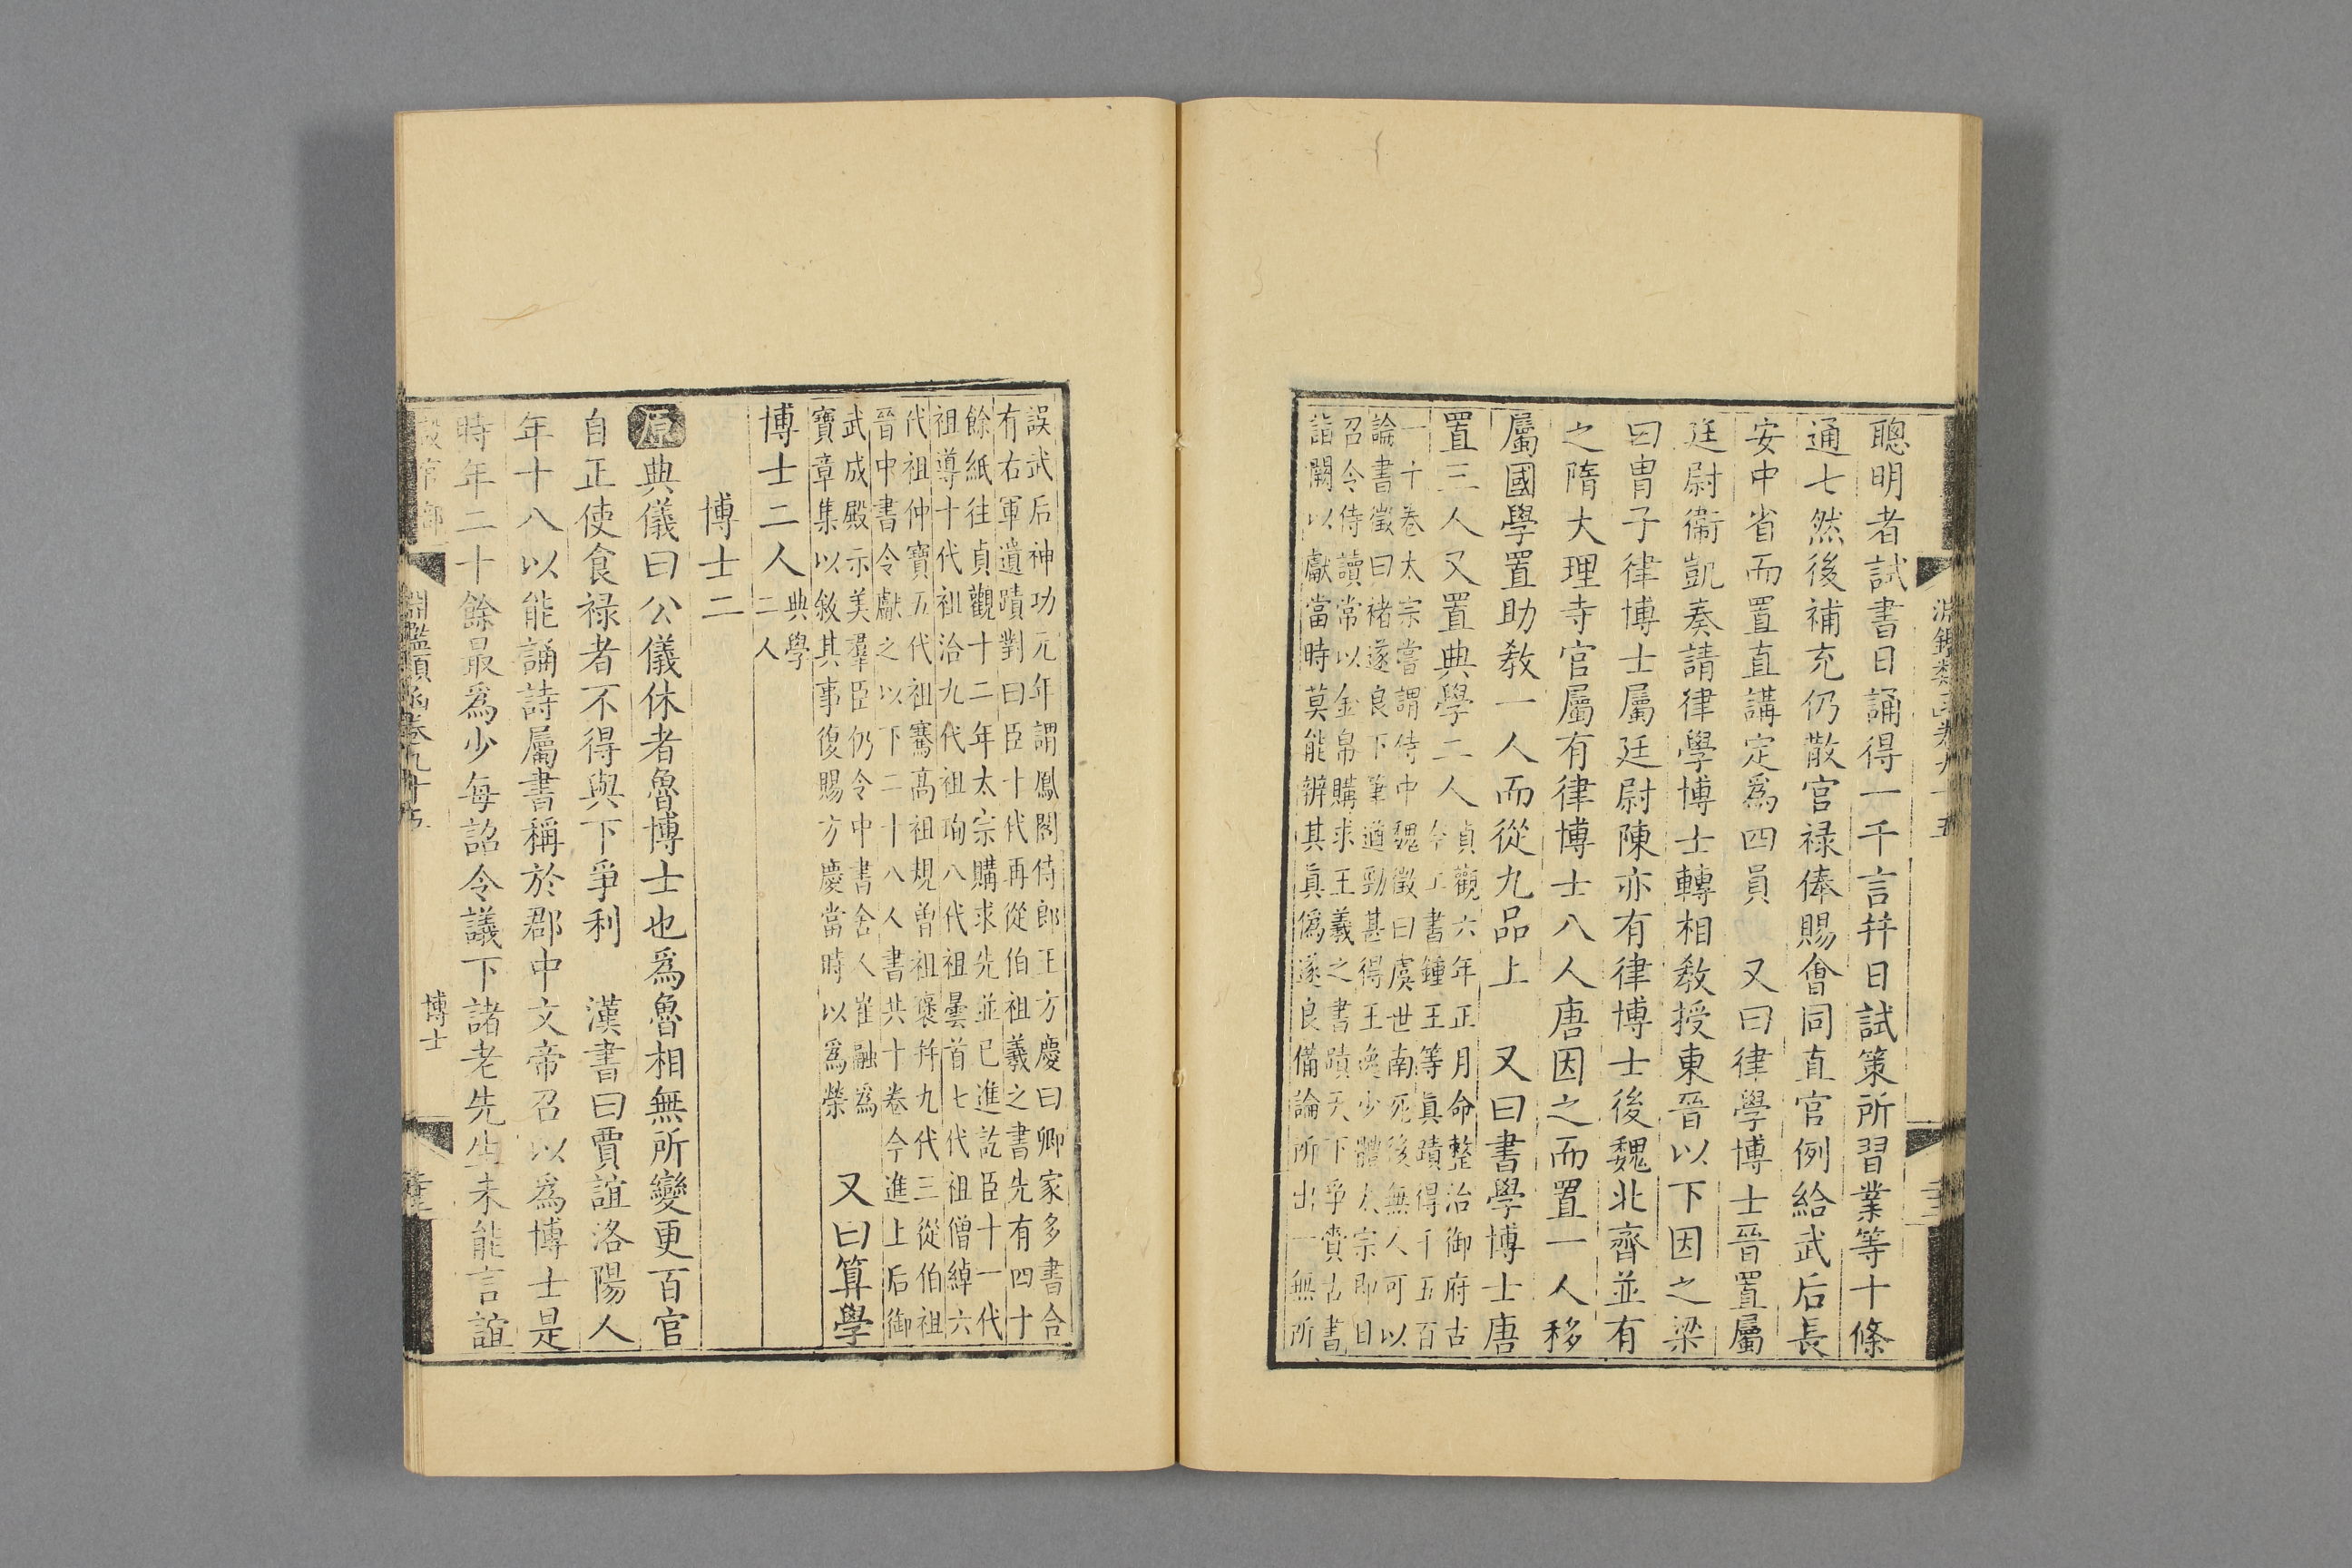 聰明者試書日誦得一千言幷日試策所習業等十條
通七然後補充仍散官祿俸賜會同直官例給武后長
安中省而置直講定爲四員　又曰律學博士晉置屬
廷尉衞凱奏請律學博士轉相敎授東晉以下因之梁
曰胄子律博士屬廷尉陳亦有律博士後魏北齊並有
之隋大理寺官屬有律博士八人唐因之而置一人移
屬國學置助敎一人而從九品上　又曰書學博士唐
置三人又置典學二人
貞觀六年正月命整治御府古
今工書鍾王等眞蹟得千五百
一十卷太宗嘗謂侍中魏徵曰虞世南死後無人可以
論書徵曰褚遂良下筆遒勁甚得王逸少體太宗即日
召令侍讀常以金帛購求王羲之書蹟天下爭賫古書
詣闕以獻當時莫能辨其眞僞遂良備論所出一無所
誤武后神功元年謂鳳閣侍郎王方慶曰卿家多書合
有右軍遺蹟對曰臣十代再從伯祖羲之書先有四十
餘紙往貞觀十二年太宗購求先並已進訖臣十一代
祖導十代祖洽九代祖珣八代祖曇首七代祖僧綽六
代祖仲寶五代祖騫高祖規曾祖襃幷九代三從伯祖
晉中書令獻之以下二十八人書共十卷今進上后御
武成殿示羣臣仍令中書舍人崔融爲
寶章集以敘其事復賜方慶當時以爲榮
又曰算學
博士二人
典學
二人
博士二
原典儀曰公儀休者魯博士也爲魯相無所變更百官
自正使食祿者不得與下爭利　漢書曰賈誼洛陽人
年十八以能誦詩屬書稱於郡中文帝召以爲博士是
時年二十餘最爲少每詔令議下諸老先生未能言誼
淵鑑類函卷九十五
博士